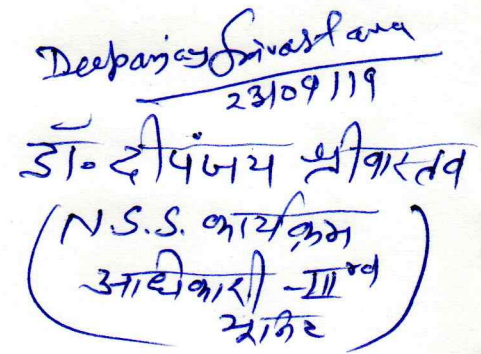 Deepanjay Srivastava
23/09/19
डॉ० दीपंजय श्रीवास्तव
(N.S.S. कार्यक्रम
अधिकारी - III rd
यूनिट)